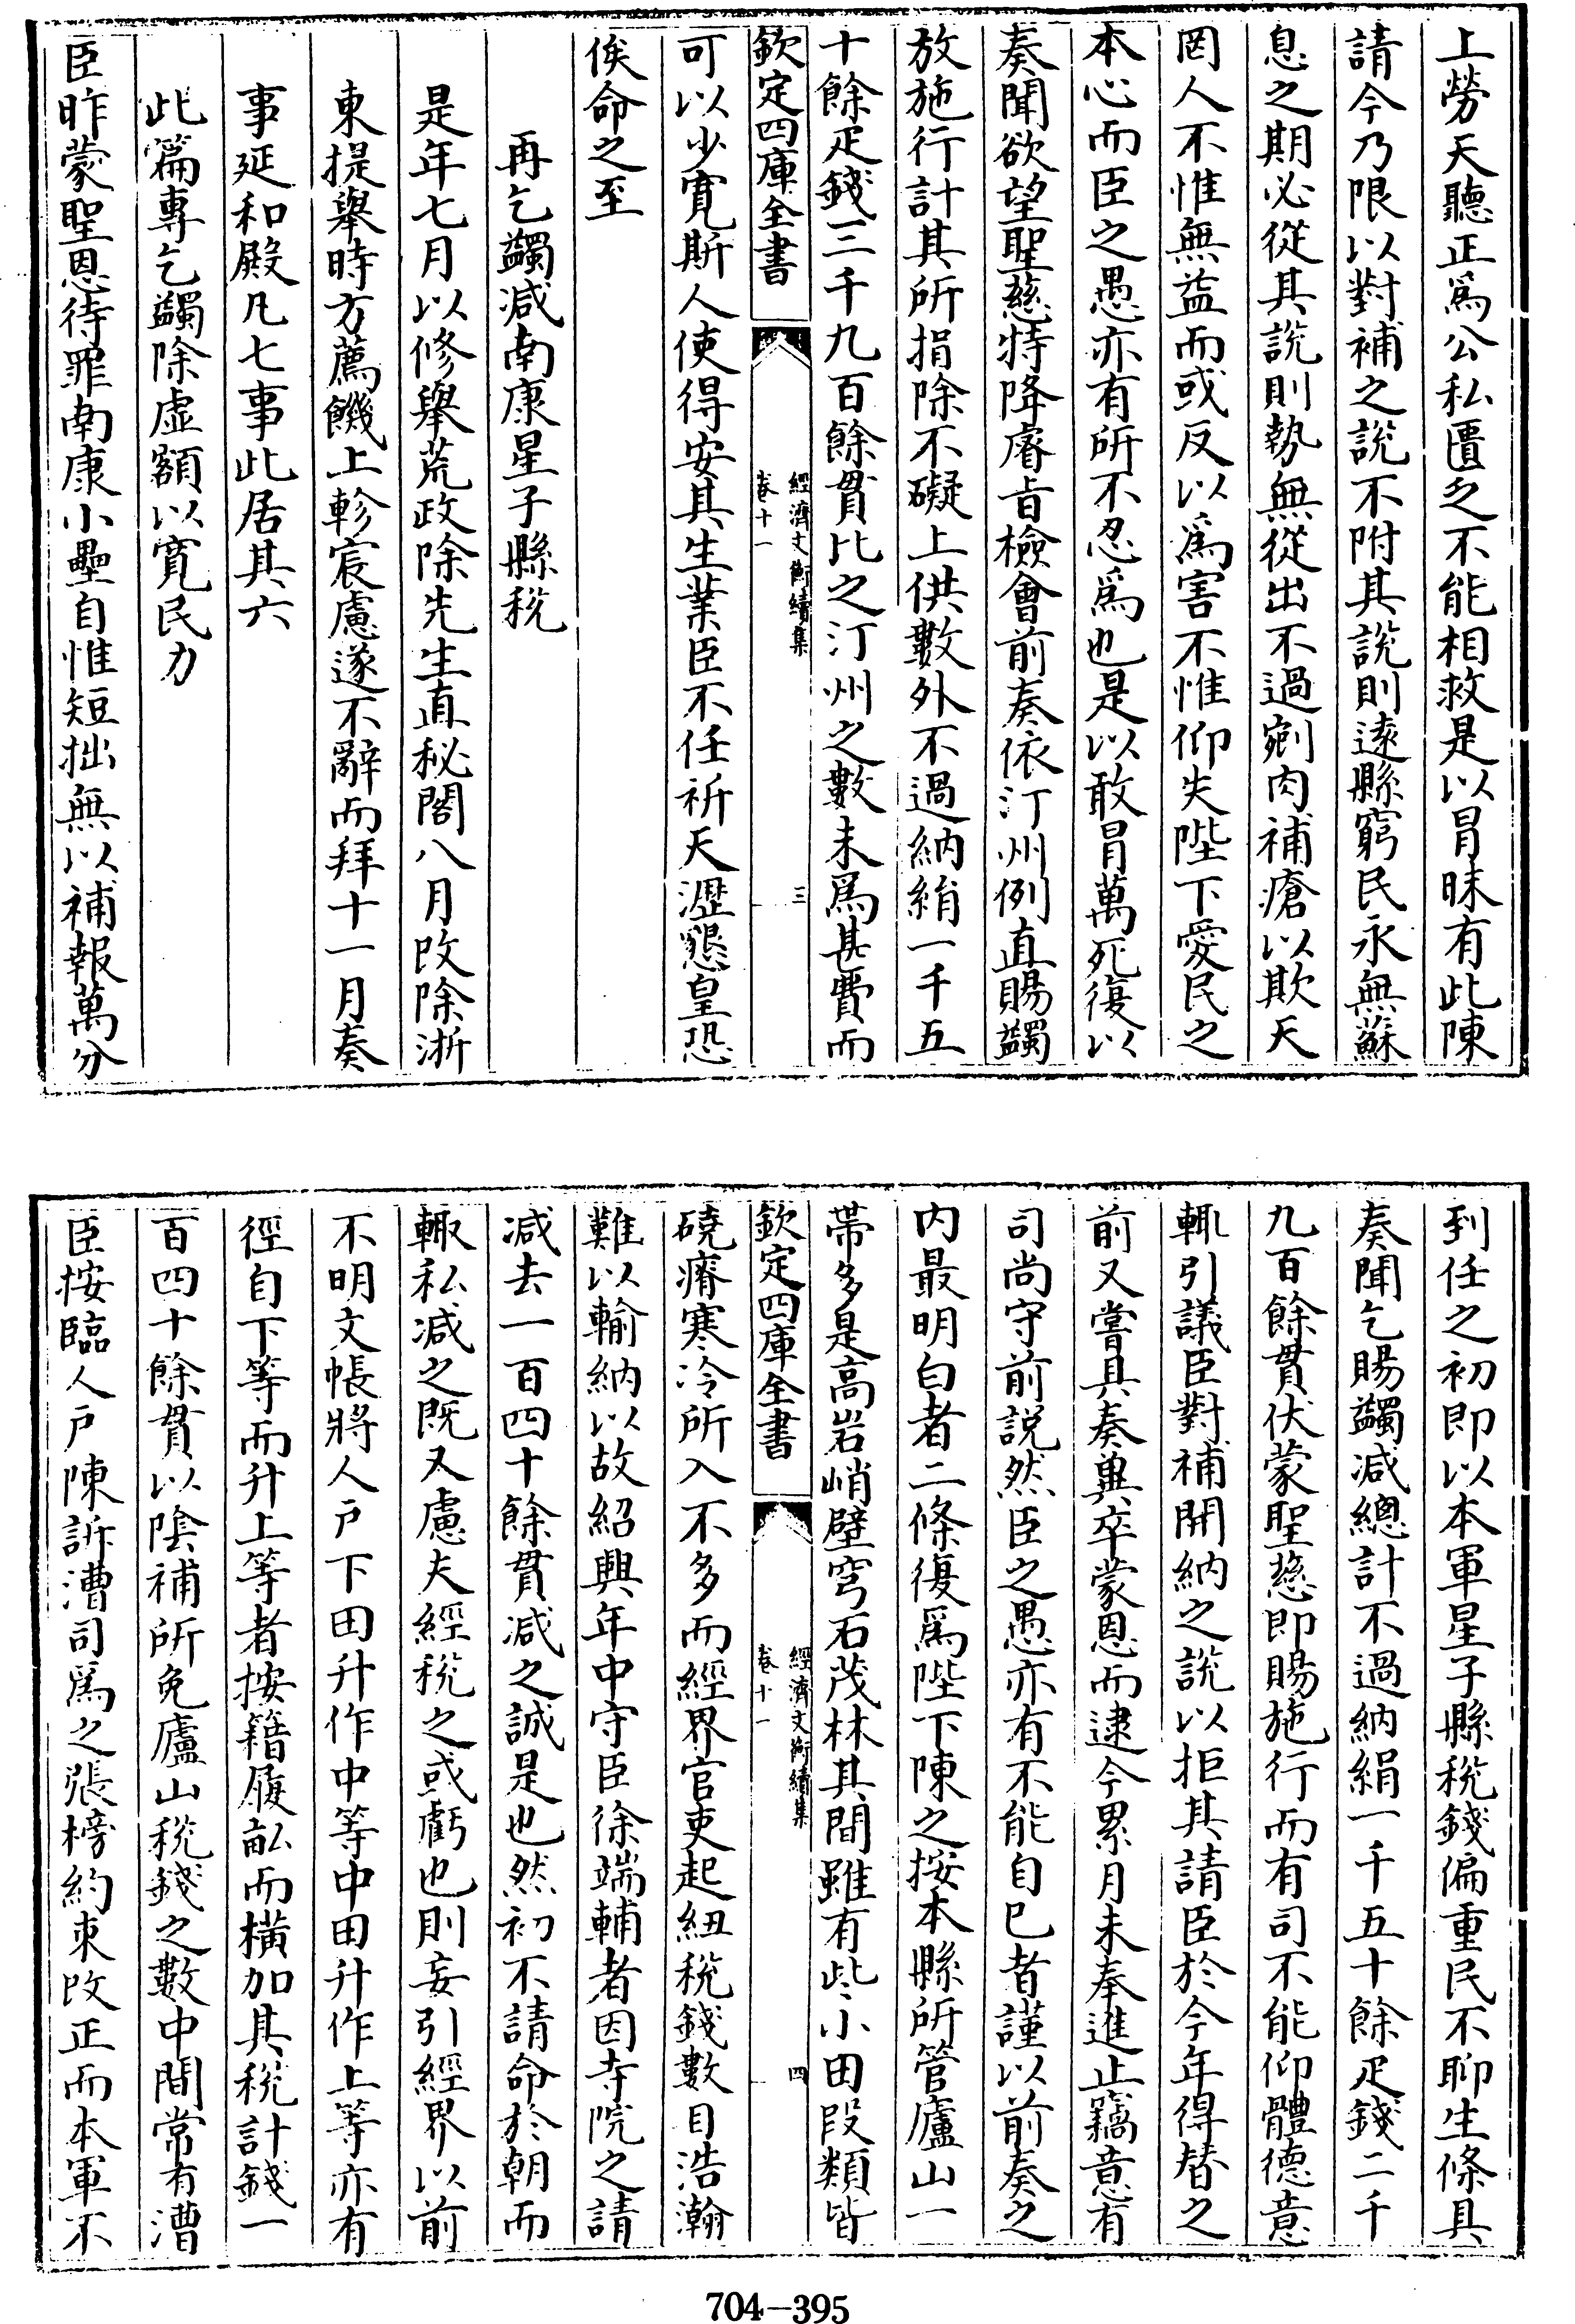 上勞天聽正為公私匱乏不能相救是以冒昧有此陳
請今乃限以對補之説不附其説則逺縣窮民永無蘇
息之期必從其説則勢無從出不過剜肉補瘡以欺天
罔人不惟無益而或反以為害不惟仰失陛下愛民之
本心而臣之愚亦有所不忍為也是以敢冒萬死復以
奏聞欲望聖慈特降睿旨檢會前奏依汀州例直賜蠲
放施行計其所捐除不礙上供數外不過納絹一千五
十餘疋錢二千九百餘貫比之汀州之數未為甚費而
欽定四庫全書
經濟文衡續集
卷十一
三
可以少寛斯人使得安其生業臣不任祈天瀝懇皇恐
俟命之至
再乞蠲減南康星子縣稅
是年七月以修舉荒政除先生直秘閣八月改除浙
東提舉時方薦饑上軫宸慮遂不辭而拜十一月奏
事延和殿凡七事此居其六
此篇專乞蠲除虛額以寛民力
臣昨蒙聖恩待罪南康小壘自惟短拙無以補報萬分
到任之初即以本軍星子縣稅錢偏重民不聊生條具
奏聞乞賜蠲減總計不過納絹一千五十餘疋錢二千
九百餘貫伏蒙聖慈即賜施行而有司不能仰體德意
輒引議臣對補開納之説以拒其請臣於今年得替之
前又嘗具奏冀卒蒙恩而逮今累月未奉進止竊意有
司尚守前説然臣之愚亦有不能自已者謹以前奏之
内最明白者二條復為陛下陳之按本縣所管廬山一
帶多是高岩峭壁穹石茂林其間雖有些小田段類皆
欽定四庫全書
經濟文衡續集
卷十一
四
磽瘠寒冷所入不多而經界官吏起紐稅錢數目浩瀚
難以輸納以故紹興年中守臣徐端輔者因寺院之請
減去一百四十餘貫減之誠是也然初不請命於朝而
輙私減之既又慮夫經稅之或虧也則妄引經界以前
不明文帳將人戶下田升作中等中田升作上等亦有
徑自下等而升上等者按籍履畝而橫加其稅計錢一
百四十餘貫以隂補所免廬山稅錢之數中間常有漕
臣按臨人戶陳訴漕司為之張榜約束改正而本軍不
704-395